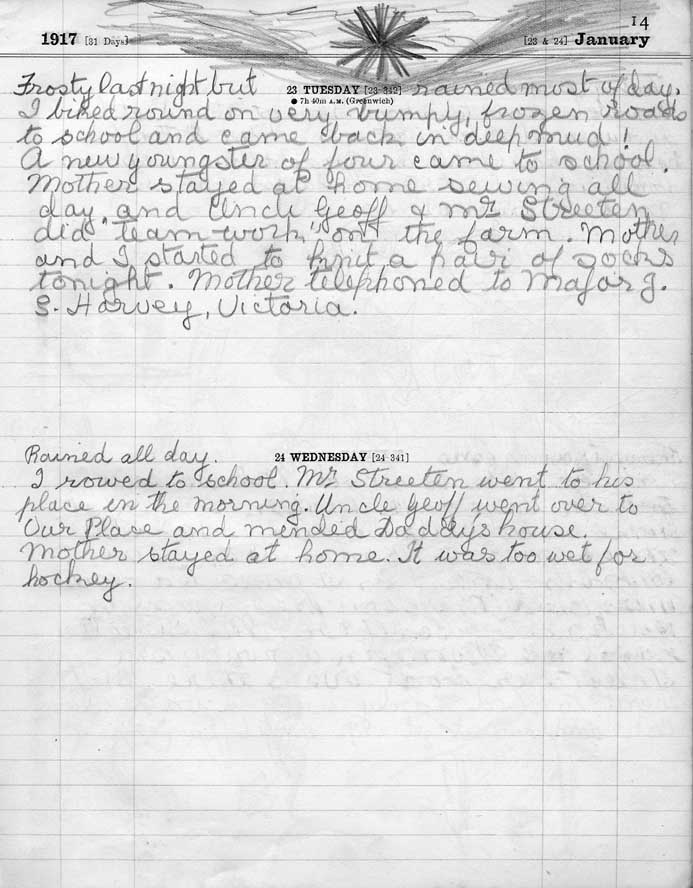 14
1917 [31 Days] [23 & 24] January
23 TUESDAY [23-342]
● 7h 40m A.M. (Greenwich)
Frosty last night but rained most of day.
I biked round on very bumpy, frozen roads
to school and came back in deep mud!
A new youngster of four came to school.
Mother stayed at home sewing all
day and Uncle Geoff & Mr Streeten
did "team-work" on the farm. Mother
and I started to knit a pair of socks
tonight. Mother telephoned to Major J.
S. Harvey, Victoria.
24 WEDNESDAY [24-341]
Rained all day.
I rowed to school. Mr Streeten went to his
place in the morning. Uncle Geoff went over to
Our Place and mended Daddys house.
Mother stayed at home. It was too wet for
hockey.